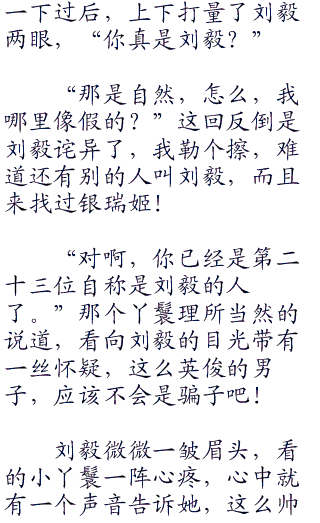 一下过后，上下打量了刘毅
两眼，“你真是刘毅？”
“那是自然，怎么，我
哪里像假的？”这回反倒是
刘毅诧异了，我勒个擦，难
道还有别的人叫刘毅，而且
来找过银瑞姬！
“对啊，你已经是第二
十三位自称是刘毅的人
了。”那个丫鬟理所当然的
说道，看向刘毅的目光带有
一丝怀疑，这么英俊的男
子，应该不会是骗子吧！
刘毅微微一皱眉头，看
的小丫鬟一阵心疼，心中就
有一个声音告诉她，这么帅